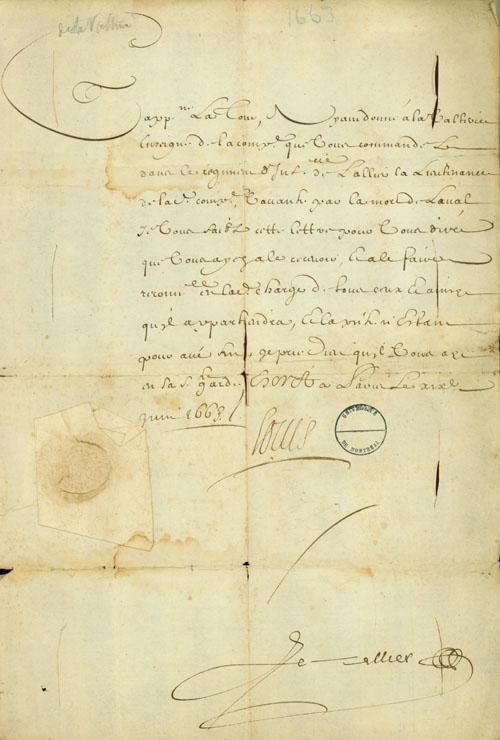 de la Vallière
1663
Capp.ne La Tour, Ayant donné à la Vallière
Enseigne de la comp.e que vous commandez
dans le regiment d'Inf.rie de Lallier la Lieutenance
de lad. comp.e, vacante par la mort de Laval
Je vous faictz cette lettre pour vous dire
que vous ayez a le recevoir, et a le faire
en lad. charge de tous ceux et ainsy
qu'il appartiendra, et la p.nte n'estant
pour fin, je prie Dieu qu'il vous ayt
en sa s.te garde. Escrit a Paris le xix.e
Juin 1663.
Louis
UNIVERSITÉ
DE MONTRÉAL
Le Tellier